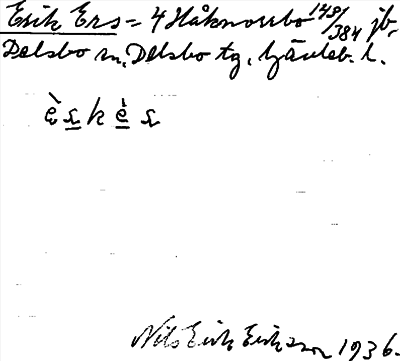 Erik Ers = 4 Håknorrbo 148/384 jb,
Delsbo sn, Delsbo tg, Gävleb. l.
Nils Erik Eriksson 1936.